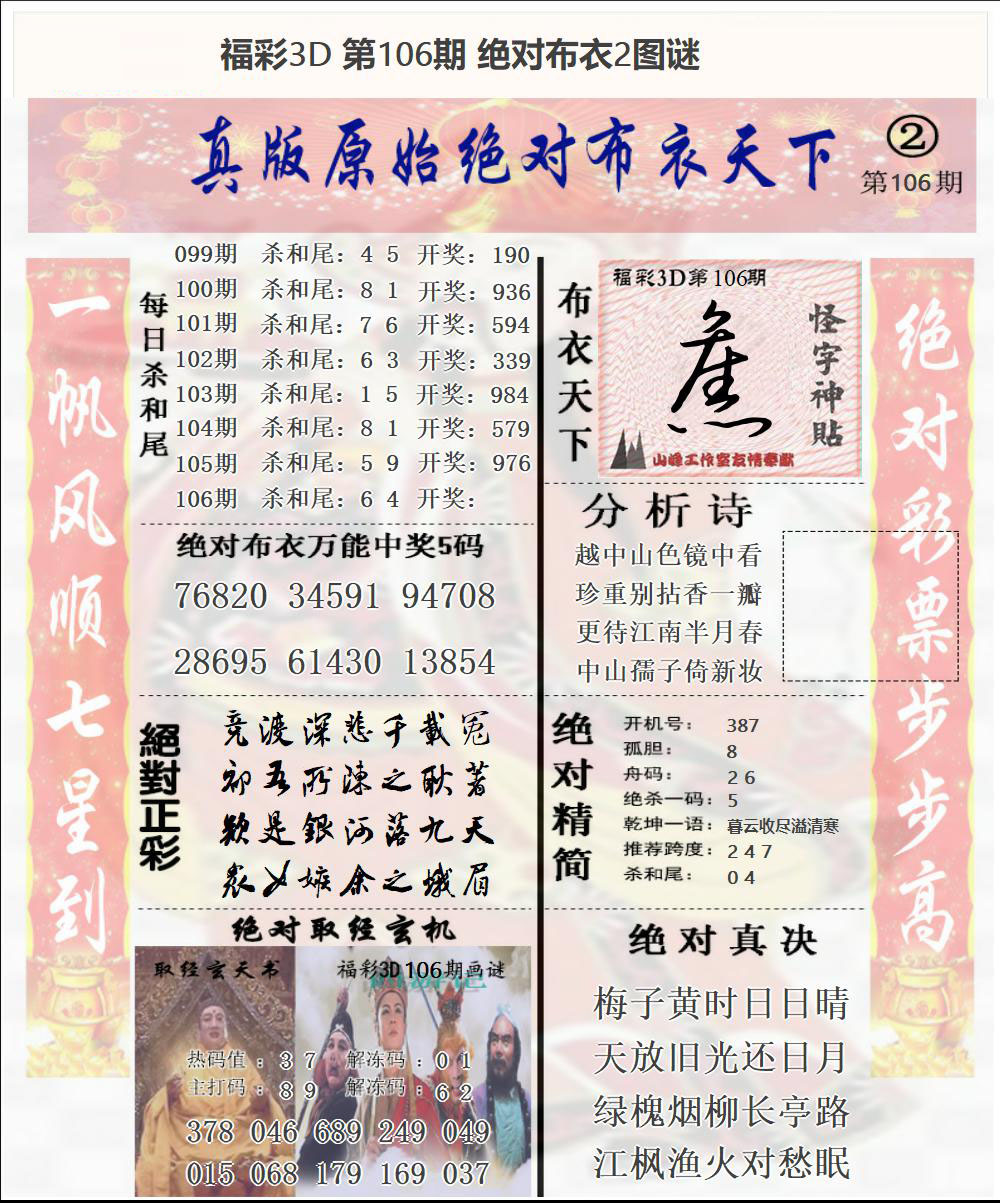 福彩3D 第106期 绝对布衣2图谜
真版原始绝对布衣天下
②
第106期
一帆风顺七星到
每日杀和尾
099期 杀和尾：4 5 开奖：190
100期 杀和尾：8 1 开奖：936
101期 杀和尾：7 6 开奖：594
102期 杀和尾：6 3 开奖：339
103期 杀和尾：1 5 开奖：984
104期 杀和尾：8 1 开奖：579
105期 杀和尾：5 9 开奖：976
106期 杀和尾：6 4 开奖：
绝对布衣万能中奖5码
76820 34591 94708
28695 61430 13854
絕對正彩
竞渡深悲千載冤
初吾所陳之耿著
疑是銀河落九天
衆女嫉余之蛾眉
绝对取经玄机
取经玄天书
福彩3D106期画谜
热码值：3 7 解冻码：0 1
主打码：8 9 解冻码：6 2
378 046 689 249 049
015 068 179 169 037
布衣天下
福彩3D第106期
怪字神貼
山峰工作室友情奉献
分析诗
越中山色镜中看
珍重别拈香一瓣
更待江南半月春
中山孺子倚新妆
绝对精简
开机号：387
孤胆：8
舟码：2 6
绝杀一码：5
乾坤一语：暮云收尽溢清寒
推荐跨度：2 4 7
杀和尾：0 4
绝对真决
梅子黄时日日晴
天放旧光还日月
绿槐烟柳长亭路
江枫渔火对愁眠
绝对彩票步步高